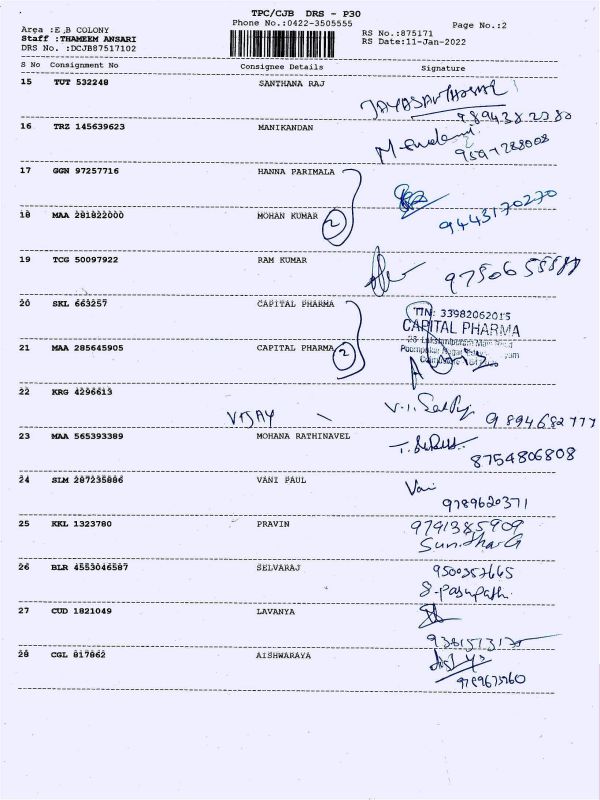 TPC/CJB DRS - P30
Phone No.:0422-3505555
Page No.:2
Area :E,B COLONY
Staff :THAMEEM ANSARI
DRS No. :DCJB87517102
RS No.:875171
RS Date:11-Jan-2022
S No Consignment No Consignee Details Signature
15 TUT 532248 SANTHANA RAJ
16 TRZ 145639623 MANIKANDAN
9597288008
17 GGN 97257716 HANNA PARIMALA
18 MAA 281822000 MOHAN KUMAR 2
9443170270
19 TCG 50097922 RAM KUMAR
20 SKL 663257 CAPITAL PHARMA
TIN: 33982062015
CAPITAL PHARMA
21 MAA 285645905 CAPITAL PHARMA 2
22 KRG 4296613
VIJAY
9894682777
23 MAA 565393389 MOHANA RATHINAVEL
8754806808
24 SLM 287235886 VANI PAUL
Vani
9789620371
25 KKL 1323780 PRAVIN
9791385909
26 BLR 4553046587 SELVARAJ
9500357665
27 CUD 1821049 LAVANYA
28 CGL 817862 AISHWARAYA